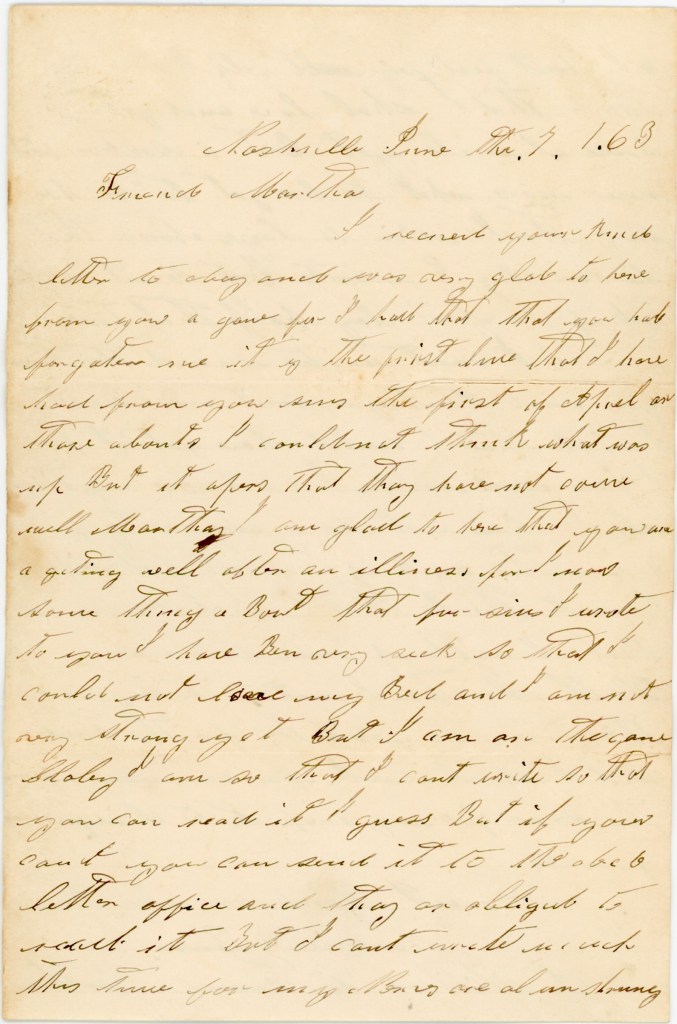 Nashville June the. 7. 1.63
Friend Martha
I receved your kind
letter to day and was very glad to here
from you a gane for I had that that you had
forgaten me it is the first line that I have
had from you sins the first of Aprel or
thare abouts I could not think what was
up But it apers that thay have not come
well Marthay I am glad to here that you are
a geting well after an illiness for I now
some thing a Bout that for sins I wrote
to you I have Ben very seck so that I
could not leave my Bed and I am not
very strong yet But I am on the gane
Sloley I am so that I cant write so that
you can read it I guess But if your
cant you can send it to the dead
letter office and thay ar obligut to
read it But I cant write much
this time for my Nerves are al un strung